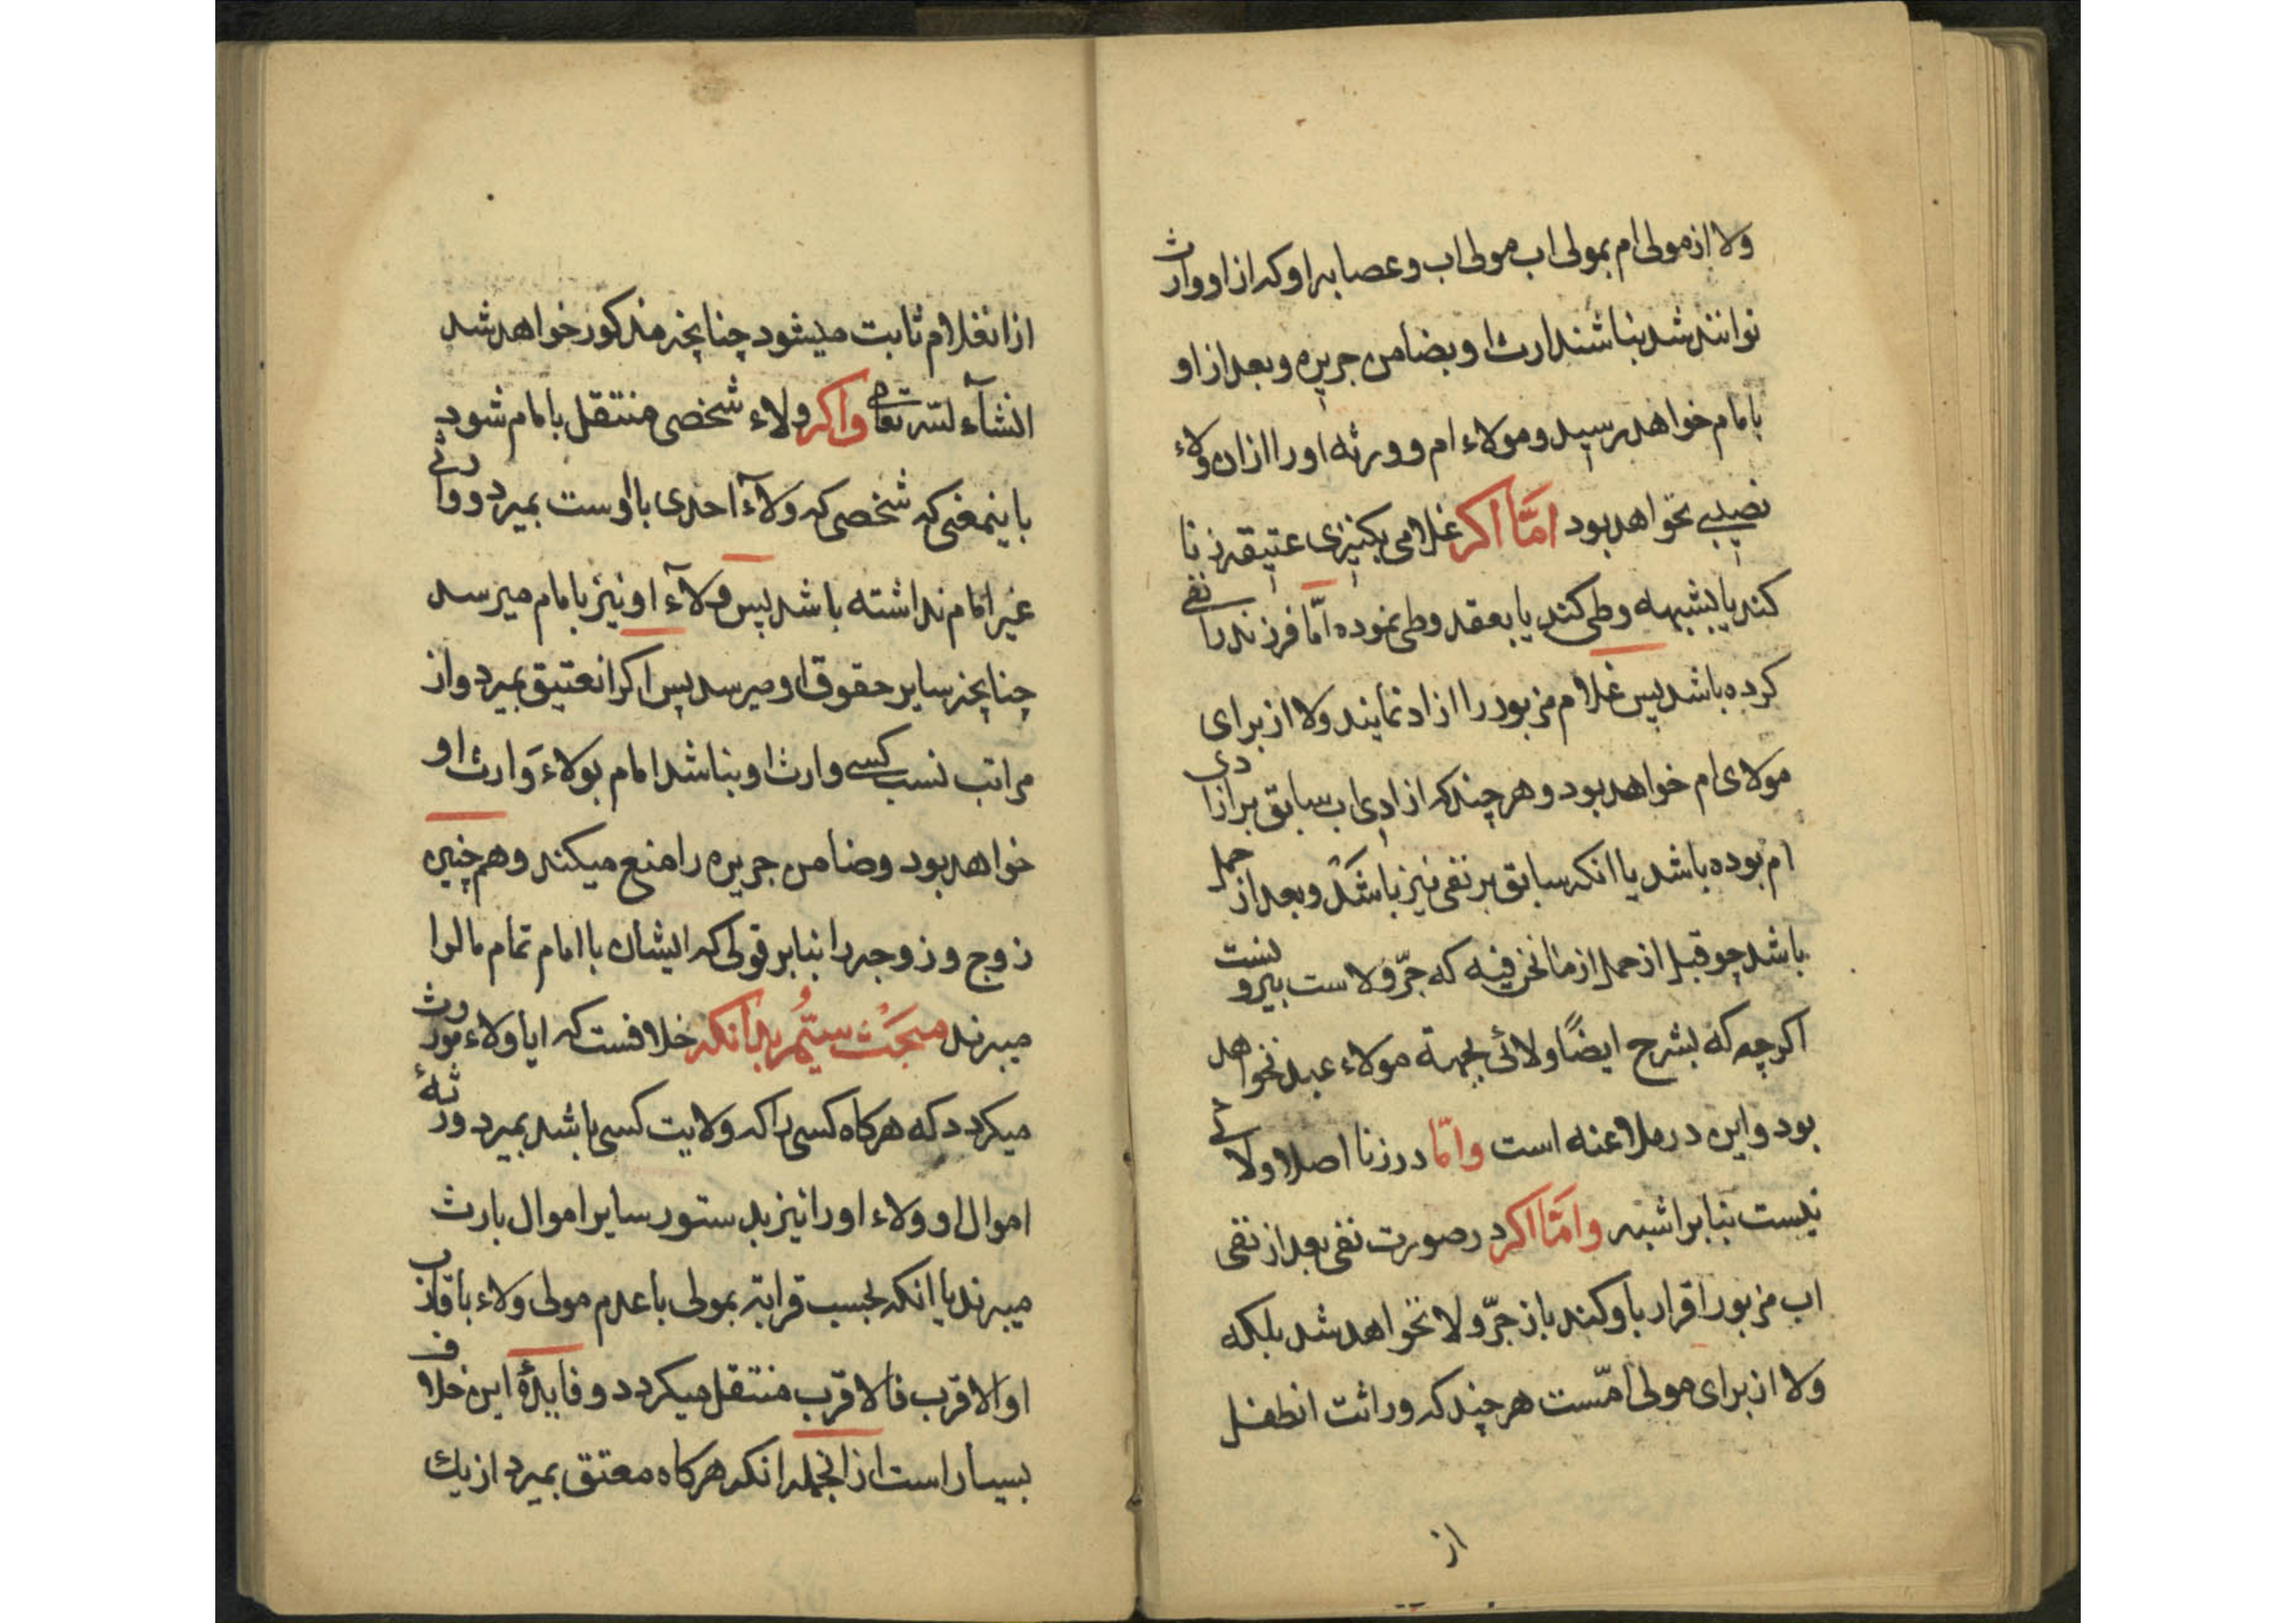 ولا از مولی ام بمولی اب مولی اب و عصابه او که از او وارث
توانند شد بناشند ارث او بضامن جریره و بعد از او
بامام خواهد رسید و مولاء ام و ورثه او را ازان ولاء
نصیبی نخواهد بود امّا اکر غلامی بکنیزی عتیقه زنا
کند یا بشبهه وطی کند یا بعقد وطی نموده امّا فرزند را نفی
کرده باشد پس غلام مزبور را ازاد نمایند ولا از برای
مولای ام خواهد بود و هر چند که ازادی اب سابق بر ازادی
ام بوده باشد یا انکه سابق بر نفی نیز باشد و بعد از حمل
باشد چو قبل از حمل از ما نحن فیه که جرّ ولاست بیرونست
اکرچه که بشرح ایضًا ولائی بجهة مولاء عبد نخواهد
بود و این در ملاعنه است وامّا در زنا اصلا ولائی
نیست بنابر اشبه وامّا اکر در صورت نفی بعد از نفی
اب مزبور اقرار باو کند باز جرّ ولا نخواهد شد بلکه
ولا از برای مولی امّست هر چند که وراثت انطفل
از
از انغلام ثابت میشود چنانچه مذکور خواهد شد
انشآء لله تعالی واکر ولاء شخصی منتقل بامام شود
باینمعنی که شخصی که ولآء احدی با اوست بمیرد و وارثی
غیر امام نداشته باشد پس ولآء او نیز بامام میرسد
چنانچه سایر حقوق او میرسد پس اکر انعتیق بمیرد و از
مراتب نسب کسی وارث او بناشد امام بولاء وَارث او
خواهد بود و ضامن جریره را منع میکند و همچنین
زوج و زوجه را بنابر قولی که ایشان با امام تمام مالرا
میبرند مبحَث سیّم بدانکه خلافست که ایا ولاء موروث
میکردد که هرکاه کسی را که ولایت کسی باشد بمیرد ورثهٔ
اموال او ولاء او را نیز بدستور سایر اموال بارث
میبرند یا انکه بحسب قرابة بمولی با عدم مولی ولاء باقارب
او الاقرب فالاقرب منتقل میکردد و فایدهٔ این خلاف
بسیار است از انجمله انکه هرکاه معتق بمیرد از یك